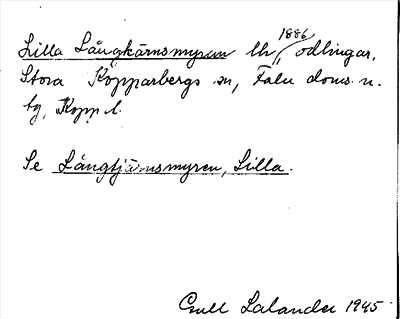 Lilla Långkärnsmyran lh, 1886 odlingar,
Stora Kopparbergs sn, Falu doms. n.
tg, Kopp l.
Se Långtjärnsmyren, Lilla.
Gull Lalander 1945